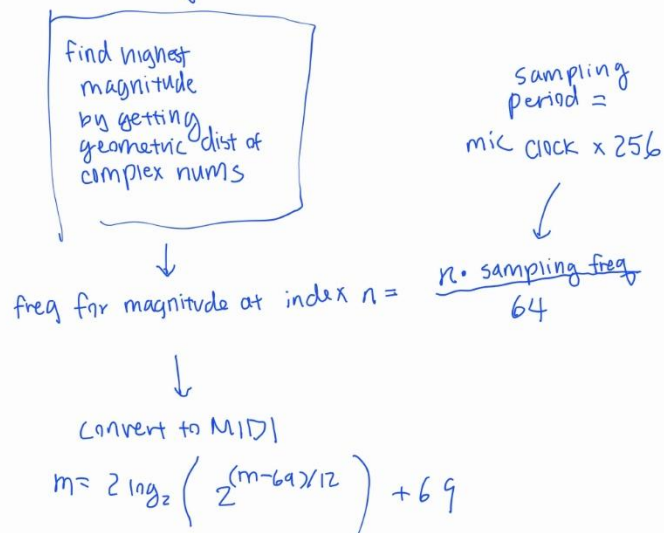 find highest
magnitude
by getting
geometric dist of
complex nums
sampling
period =
mic clock x 256
freq for magnitude at index n = n · sampling freq
64
convert to MIDI
m = 2 log₂ ( 2^(m-69)/12 ) + 69